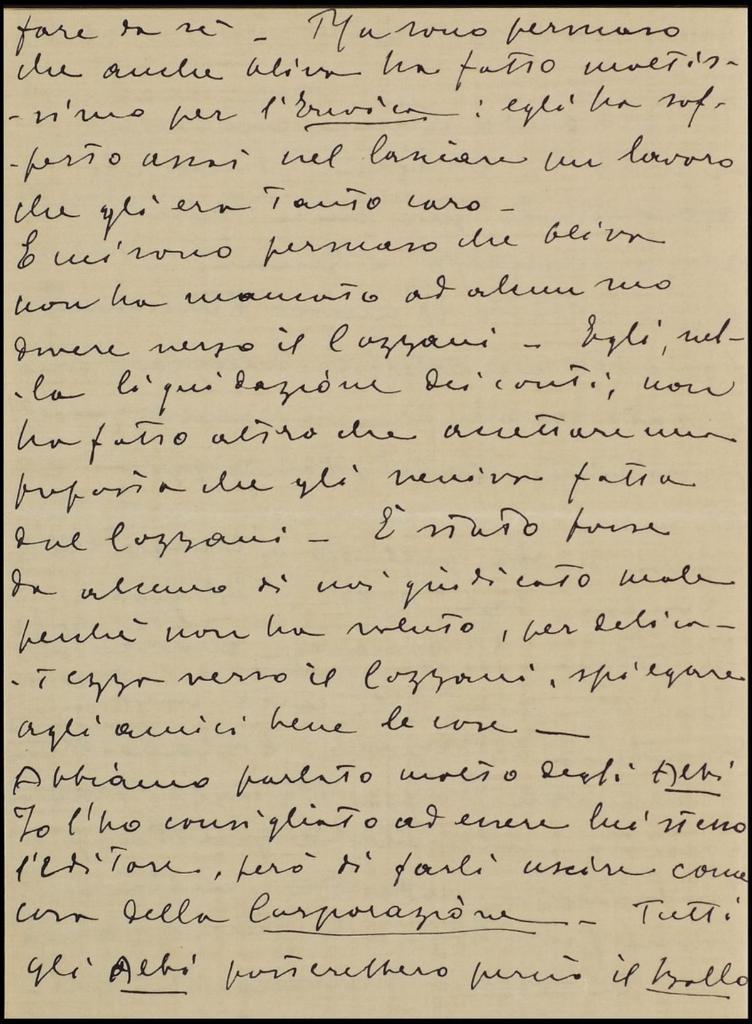 fare da sè - Ma sono persuaso
che anche Oliva ha fatto moltis-
-simo per l'Eroica: egli ha sof-
-ferto assai nel lasciare un lavoro
che gli era tanto caro -
E mi sono persuaso che Oliva
non ha mancato ad alcun suo
dovere verso il Cozzani - Egli, nel-
-la liquidazione dei conti, non
ha fatto altro che accettare una
proposta che gli veniva fatta
dal Cozzani - È stato forse
da alcuno di noi giudicato male
perchè non ha voluto, per delica-
-tezza verso il Cozzani, spiegare
agli amici bene le cose —
Abbiamo parlato molto degli Albi
Io l'ho consigliato ad essere lui stesso
l'Editore, però di farli uscire come
cosa della Corporazione - Tutti
gli Albi porterebbero perciò il bollo